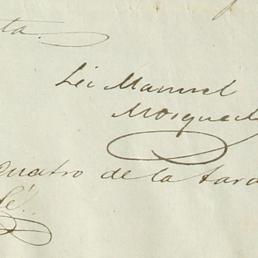 ta.
Lei Manuel
Mosqued
cuatro de la tard
fé.